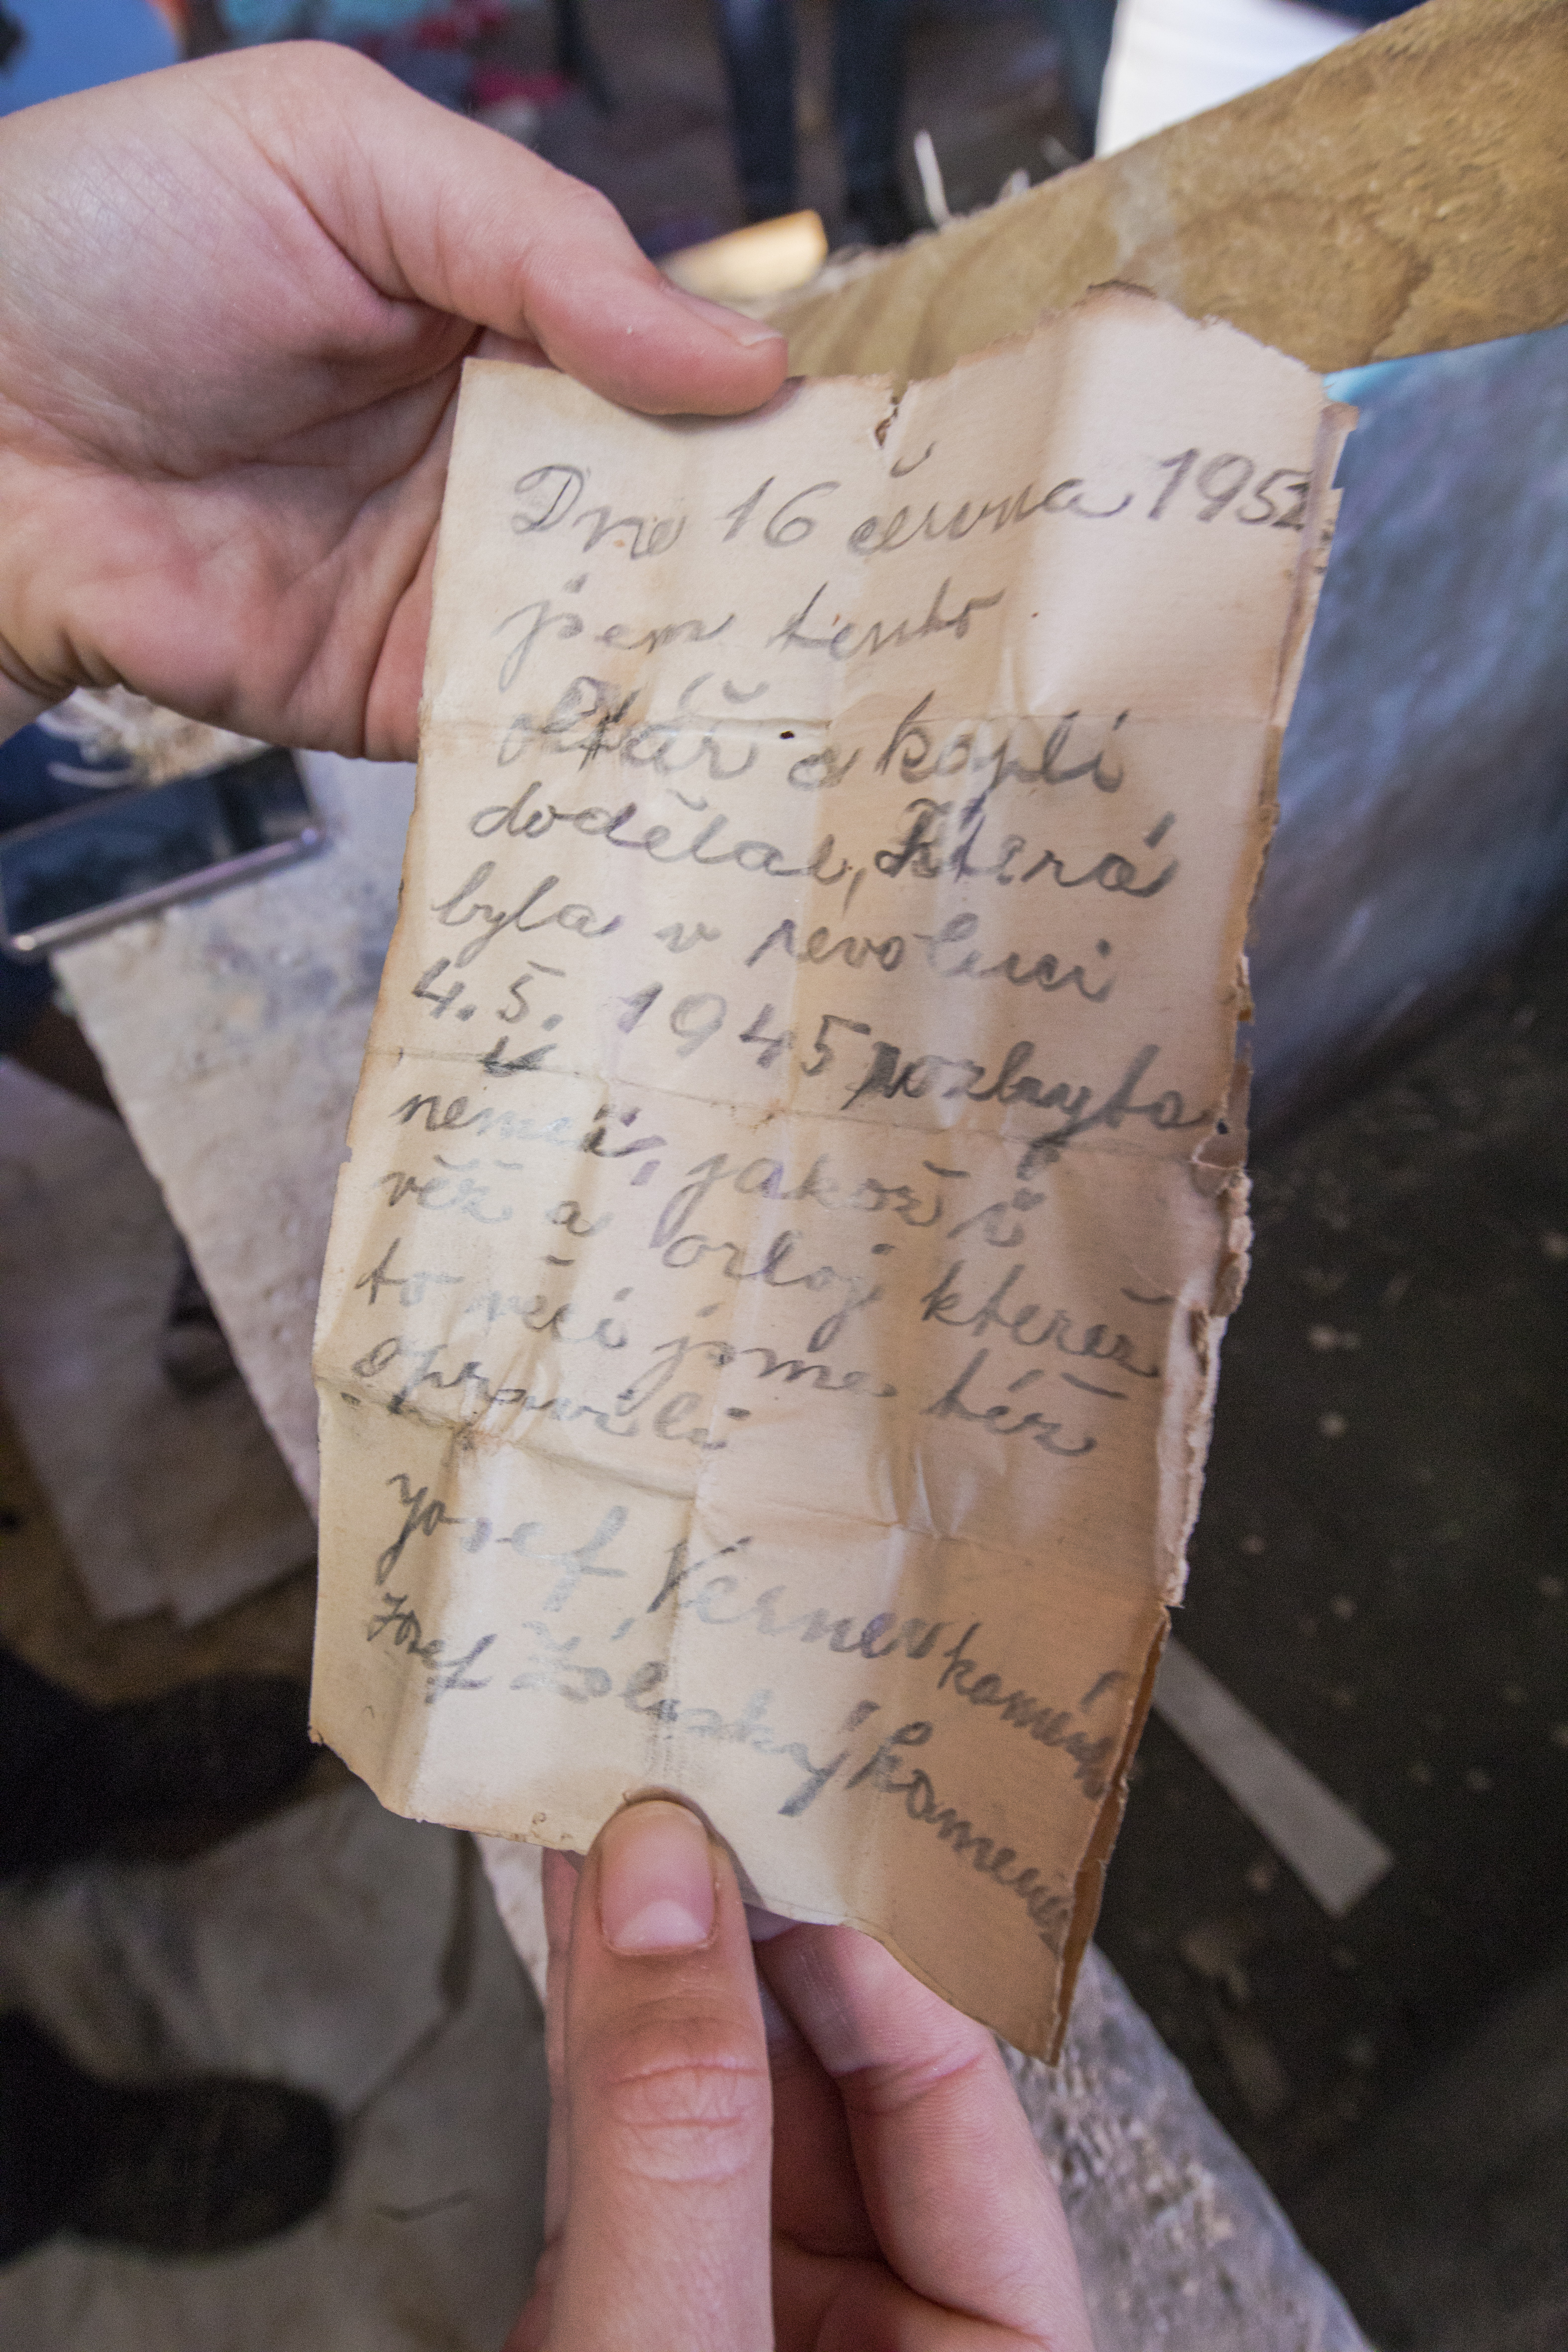 Dne 16 června 1952
jsem tento
oltář a kapli
dodělal, která
byla v revoluci
4. 5. 1945 rozbyta
nemci, jakož i
věž a orloj kterež
to věci jsme též
opravili
Josef Verner kameník
Josef Záleský kameník